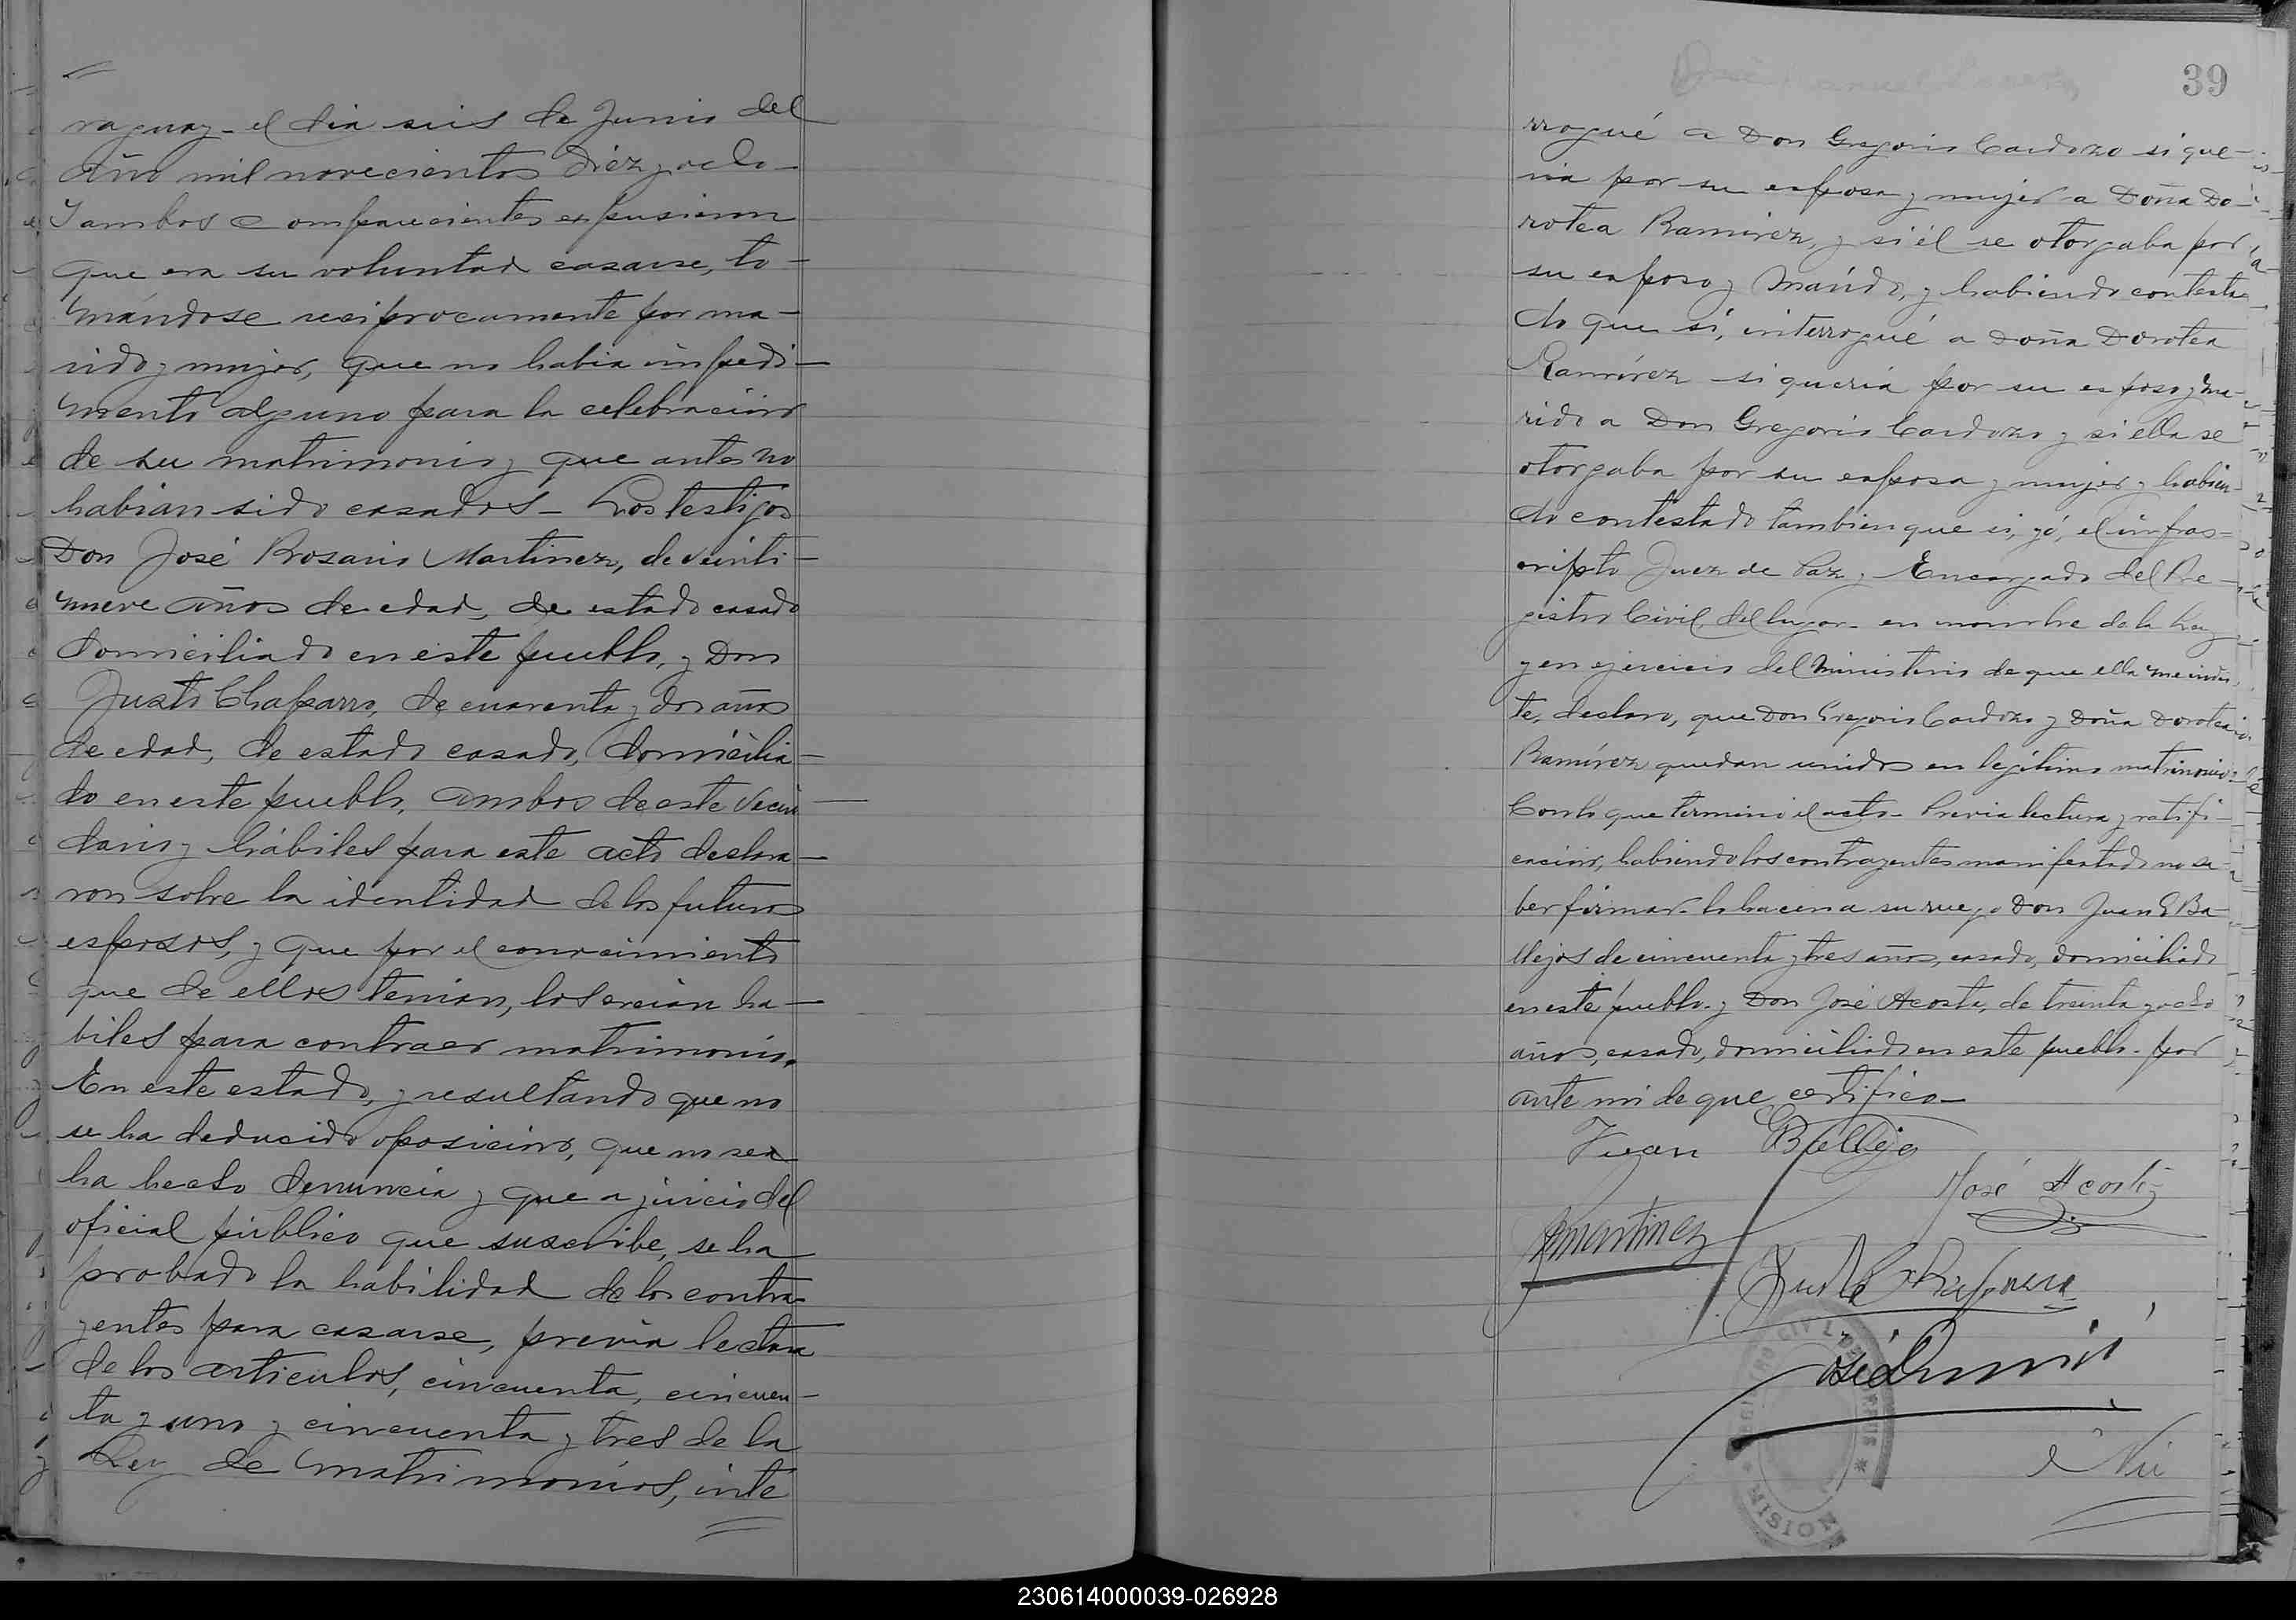 raguay - el dia seis de Junio del
año mil novecientos diez y ocho -
Y ambos comparecientes expusieron
que era su voluntad casarse, to-
mándose reciprocamente por ma-
rido y mujer, que no habia impedi-
mento alguno para la celebracion
de su matrimonio y que antes no
habian sido casados - Los testigos
Don José Rosario Martinez, de veinti-
nueve años de edad, de estado casado
domiciliado en este pueblo, y Don
Justo Chaparro, de cuarenta y dos años
de edad, de estado casado, domicilia-
do en este pueblo, ambos de este vecin
dario y hábiles para este acto declara-
ron sobre la identidad de los futuros
esposos, y que por el conocimiento
que de ellos tenian, los creian ha-
biles para contraer matrimonio.
En este estado, y resultando que no
se ha deducido oposicion, que no se
ha hecho denuncia y que a juicio del
oficial público que suscribe, se ha
probado la habilidad de los contra-
yentes para casarse, previa lectura
de los articulos, cincuenta, cincuen-
ta y uno y cincuenta y tres de la
Ley de Matrimonios, inte
39
rrogué a Don Gregorio Cardozo si que-
ria por su esposa y mujer a Doña Do-
rotea Ramirez, y si él se otorgaba por
su esposo y marido, y habiendo contesta
do que sí, interrogué a Doña Dorotea
Ramírez si queria por su esposo y ma-
rido a Don Gregorio Cardozo y si ella se
otorgaba por su esposa y mujer y habien-
do contestado tambien que si, yó, el infras=
cripto Juez de Paz y Encargado del Re-
gistro Civil del lugar - en nombre de la Ley
y en ejercicio del Ministerio de que ella me invis
te, declaro, que Don Gregorio Cardozo y Doña Dorotea
Ramírez quedan unidos en legitimo matrimonio=
Con lo que terminó el acto - Previa lectura y ratifi-
cacion, habiendo los contrayentes manifestado no sa-
ber firmar - lo hacen a su ruego Don Juan E Ba
llejos de cincuenta y tres años, casado, domiciliado
en este pueblo - y Don José Acosta, de treinta y ocho
años, casado, domiciliado en este pueblo - por
ante mi de que certifico -
Juan E Ballejo
José Acosta
R Martinez
Justo Chaparro
MISION
230614000039-026928